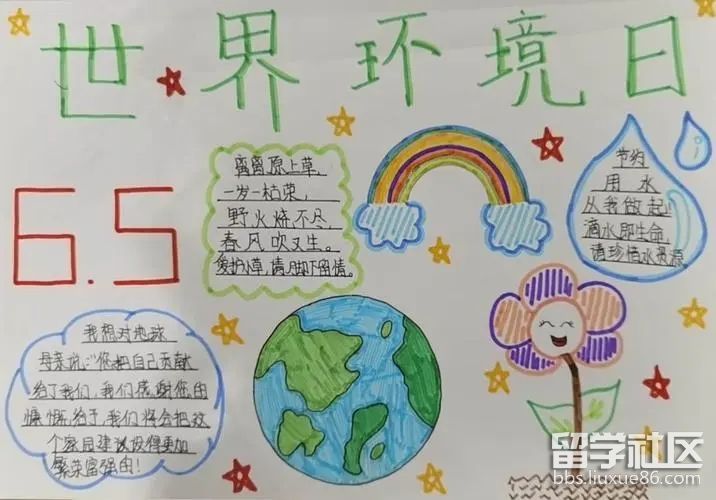 世界环境日
6.5
离离原上草,
一岁一枯荣,
野火烧不尽,
春风吹又生。
爱护小草,请脚下留情。
节约
用水
从我做起!
滴水即生命,
请珍惜水资源
我想对地球
母亲说:"您把自己贡献
给了我们,我们感谢您的
慷慨给予,我们将会把这
个家园建设设得更加
繁荣富强的!
留学社区
bbs.liuxue86.com